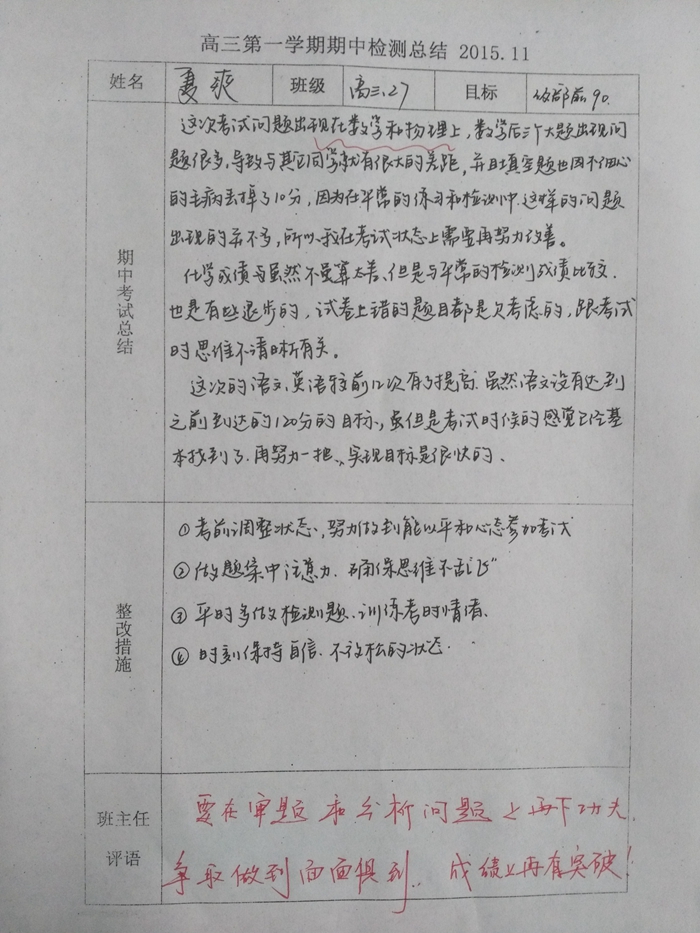 高三第一学期期中检测总结 2015.11
姓名 夏爽 班级 高三.27 目标 级部前90.
期中考试总结
这次考试问题出现在数学和物理上,数学后三个大题出现问
题很多,导致与其它同学就有很大的差距,并且填空题也因不细心
的毛病丢掉了10分,因为在平常的练习和检测中.这样的问题
出现的并不多,所以我在考试状态上需要再努力改善。
化学成绩虽然不是算太差、但是与平常的检测成绩比较.
也是有些退步的,试卷上错的题目都是欠考虑的,跟考试
时思维不清晰有关。
这次的语文、英语较前几次有了提高.虽然语文没有达到
之前到达的120分的目标、但是考试时候的感觉已经基
本找到了.再努力一把、实现目标是很快的、
整改措施
①考前调整状态、努力做到能以平和心态参加考试
②做题集中注意力.确保思维不乱“飞”
③平时多做检测题、训练考时情绪、
④时刻保持自信.不放松的状态.
班主任
评语
要在审题和分析问题上再下功夫,
争取做到面面俱到,成绩上再有突破!